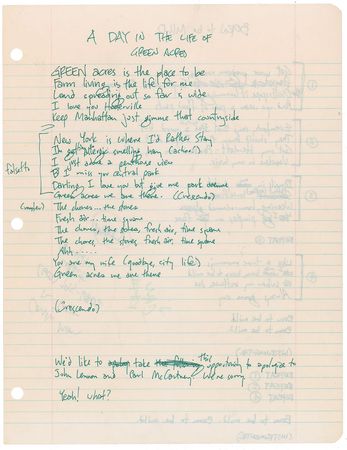 A DAY IN THE LIFE OF
GREEN ACRES
GREEN acres is the place to be
Farm living is the life for me
Land spreading out so far & wide
I love you Hooterville
Keep Manhattan just gimme that countryside
New York is where I'd Rather Stay
I get allergic smelling hay (achoo!)
I just adore a penthouse view
I miss you central park
Falsetto
Darling I love you but give me park avenue
Green acres we are there. (Crescendo)
The chores... the stores
Fresh air... time square
The chores, the stores, fresh air, time square
The chores, the stores, fresh air, time square
Ahh
You are my wife (goodbye, city life)
Green acres we are there
(Crescendo)
We'd like to take this opportunity to apologize to
John Lennon and Paul McCartney. We're sorry
Yeah! what?